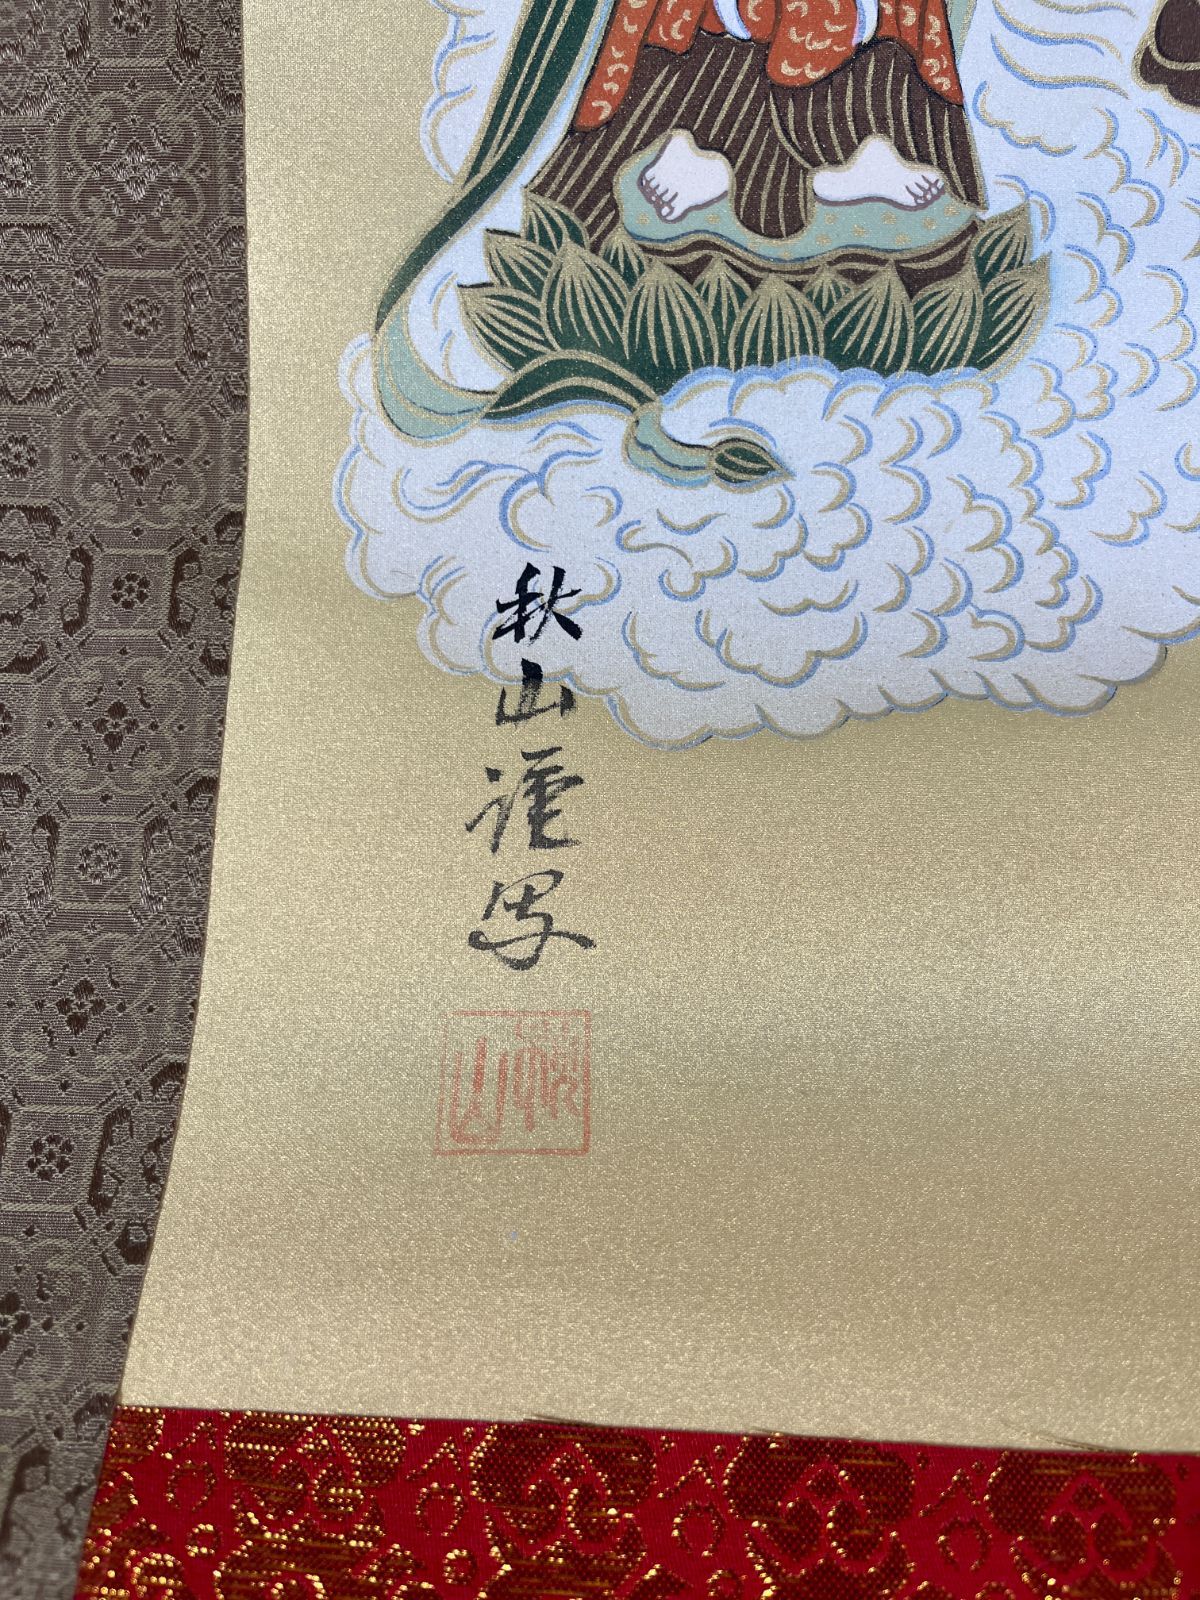 秋山謹写